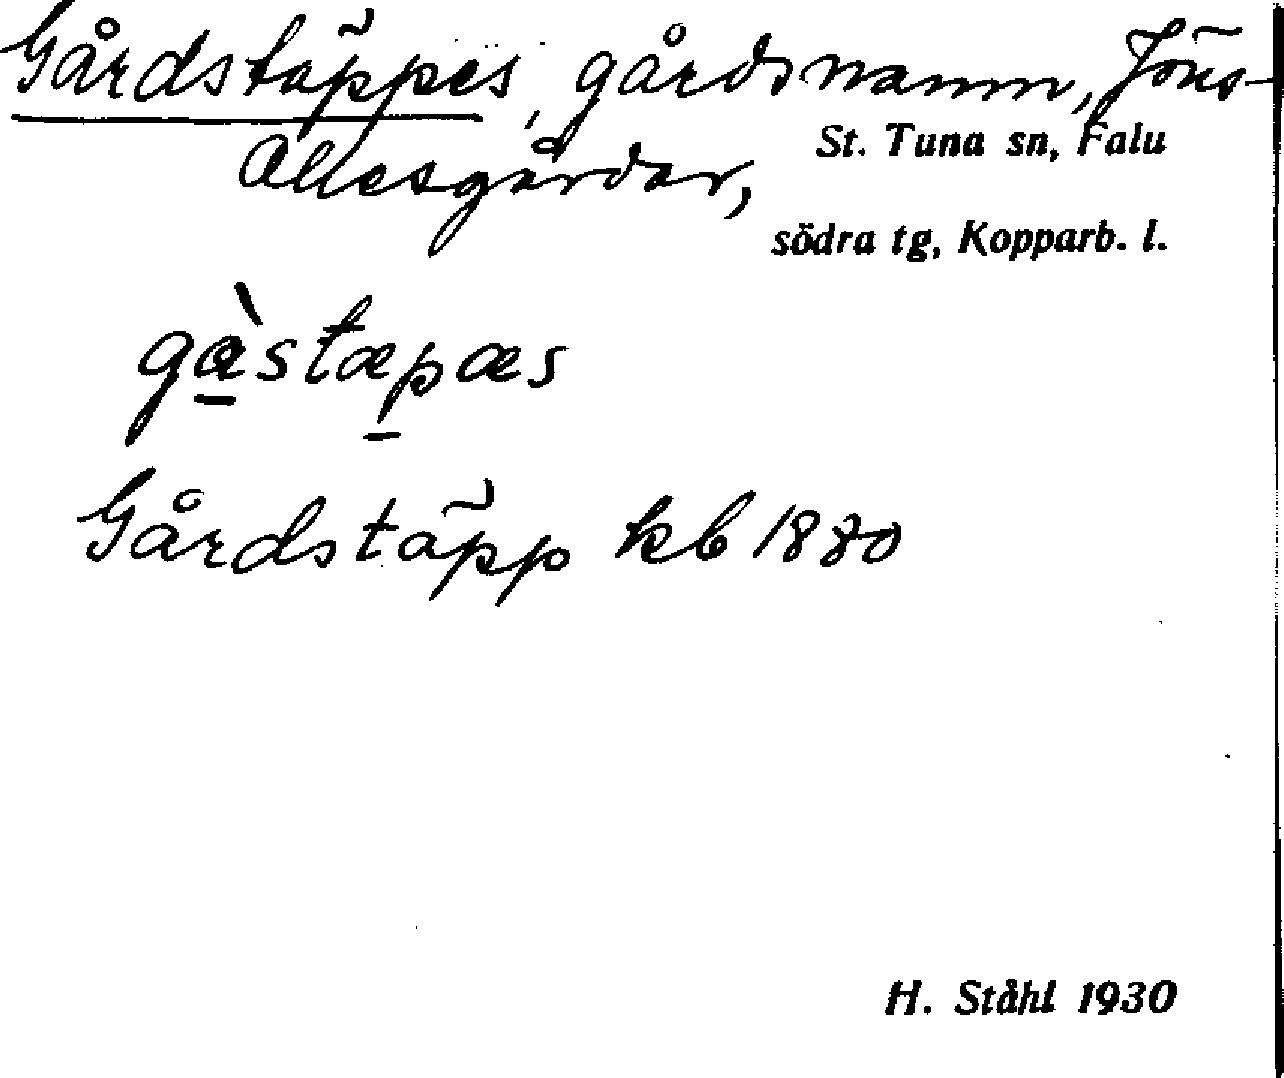 Gårdstäppes, gårdsnamn, Jöns-
Ollesgårdar,
St. Tuna sn, Falu
södra tg, Kopparb. l.
gàstæpæs
Gårdstäpp kb 1880
H. Ståhl 1930